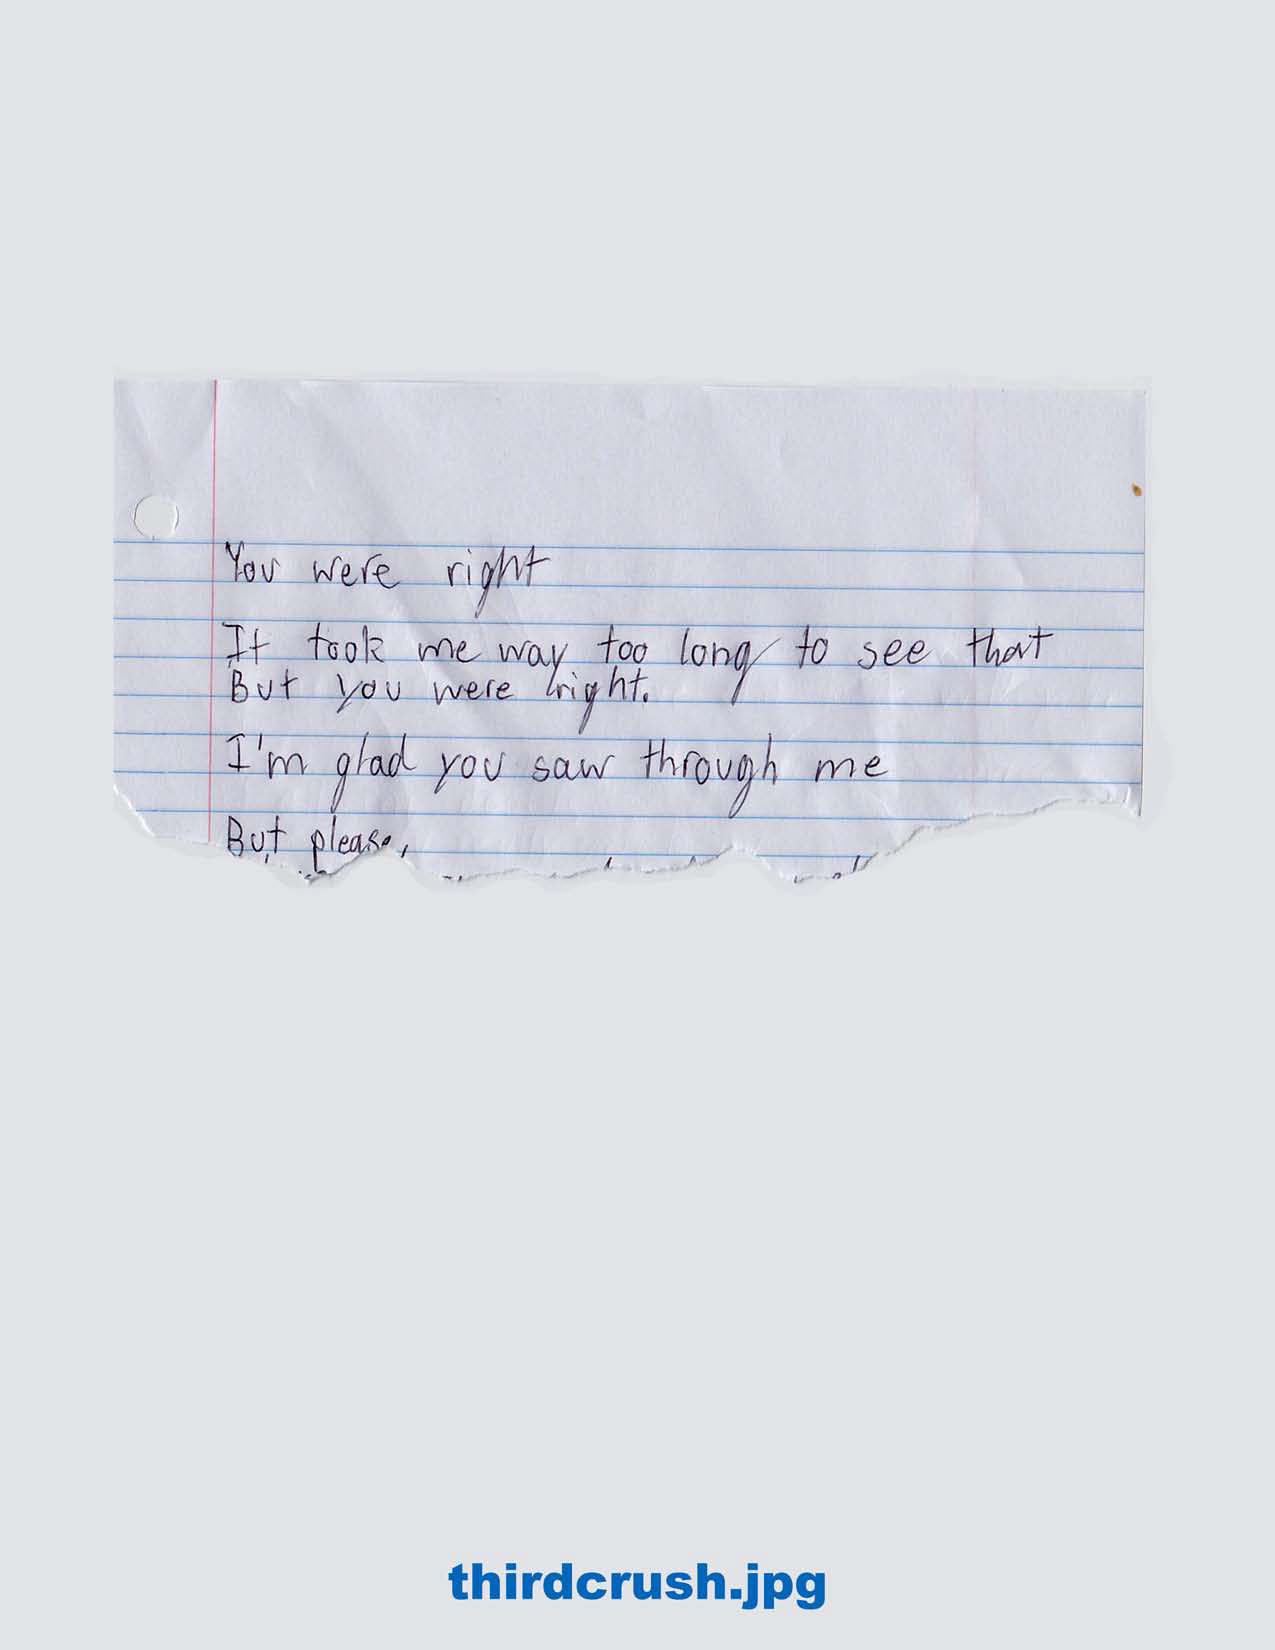 You were right
It took me way too long to see that
But you were right.
I'm glad you saw through me
But please,
thirdcrush.jpg